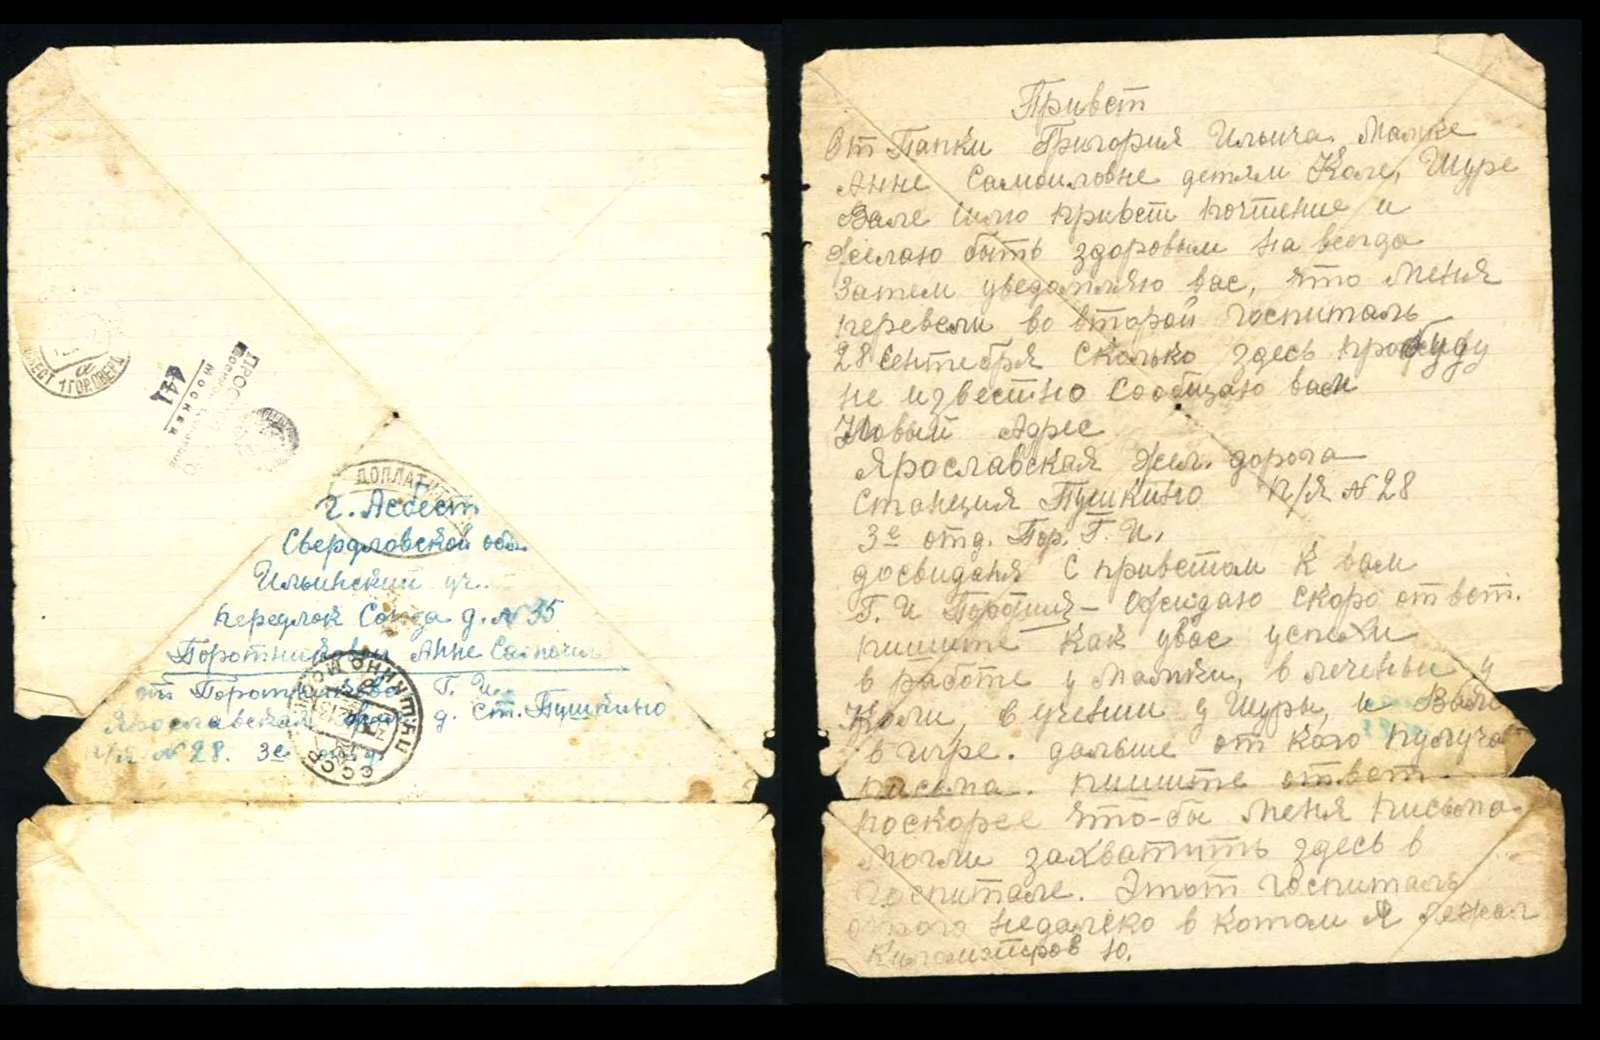 БЕСТ 1 ГОР СВЕРД
а
ПРОС
МОСКВА
441
ДОПЛАТИТЬ
г. Асбест
Свердловской обл
Ильинский уч.
передлок Союза д. № 35
Поротниковой Анне Самоил
от Поротникова Г. И.
Ярославская д. ст. Пушкино
п/я № 28. 3е отд
ПУШКИНО МОСК
СССР
Привет
От Папки Григория Ильича. Мамке
Анне Самоиловне детям Коле, Шуре
Вале шлю привет почтение и
желаю быть здоровым на всегда
Затем уведомляю вас, что меня
перевели во второй госпиталь
28 Сентебря Сколько здесь пробуду
не известно Сообщаю вам
Новый Адрес
Ярославская жел. дорога
Станция Пушкино П/я № 28
3е отд. Пор. Г. И.
досвиданя С приветом К вам
Г. И Ожидаю скоро ответ.
пишите как увас успехи
в работе у Мамки, в леченьи у
Коли, в учении у Шуры, и Вали
в игре. дальше от кого получа
письма. пишите ответ
поскорее что-бы меня письмо
могли захватить здесь в
госпитале. Этот госпиталь
недалеко в котом я лежал
Километров 10.